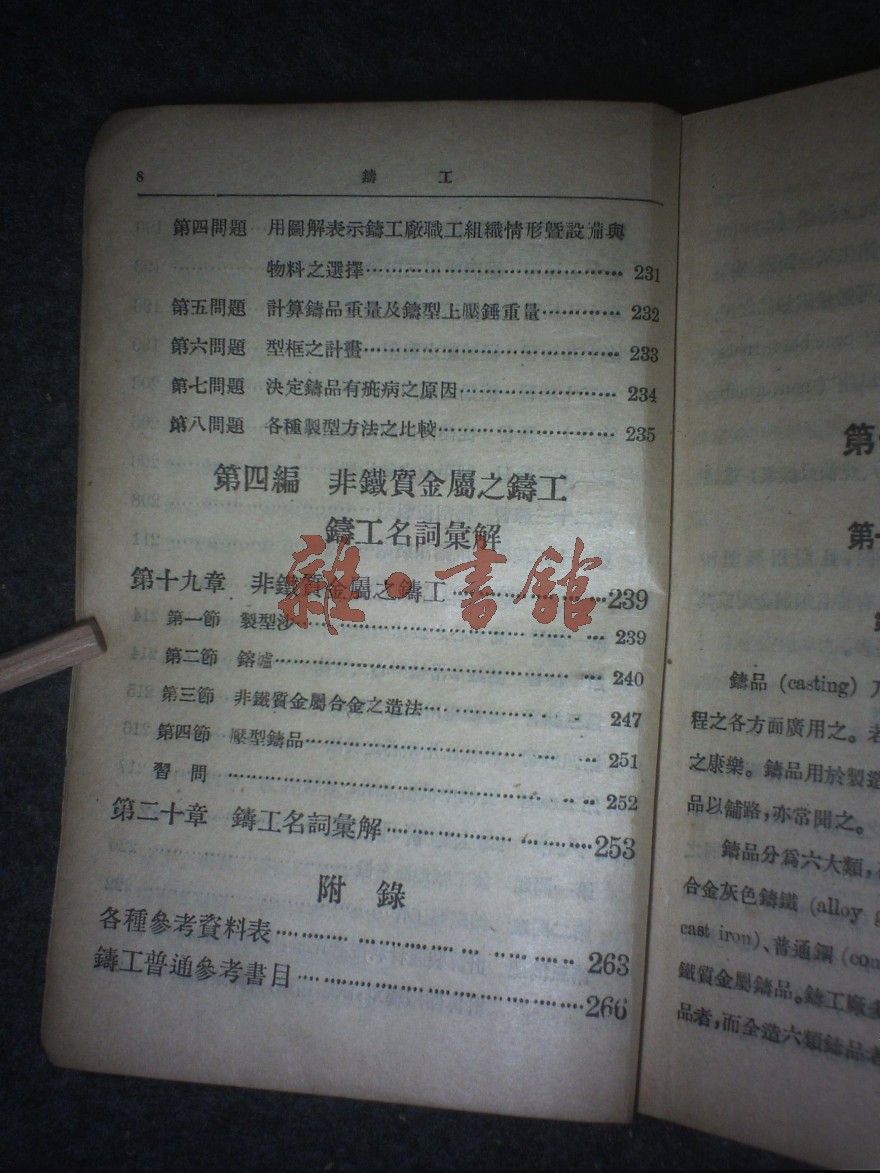 8 鑄 工
第四問題 用圖解表示鑄工廠職工組織情形暨設備與
物料之選擇……………………………… 231
第五問題 計算鑄品重量及鑄型上壓錘重量………… 232
第六問題 型框之計畫……………………………… 233
第七問題 決定鑄品有疵病之原因………………… 234
第八問題 各種製型方法之比較…………………… 235
第四編 非鐵質金屬之鑄工
鑄工名詞彙解
第十九章 非鐵質金屬之鑄工……………239
第一節 製型沙…………………………… 239
第二節 鎔爐……………………………… 240
第三節 非鐵質金屬合金之造法………… 247
第四節 壓型鑄品………………………… 251
習 問 ………………………………… 252
第二十章 鑄工名詞彙解………………253
附 錄
各種參考資料表…………………………263
鑄工普通參考書目………………………266
雜·書舘
第
第
鑄品 (casting) 乃
程之各方面廣用之。
之康樂。鑄品用於製造
品以舖路,亦常聞之。
鑄品分爲六大類,
合金灰色鑄鐵 (alloy g
cast iron)、普通鋼 (com
鐵質金屬鑄品。鑄工廠
品者,而全造六類鑄品者